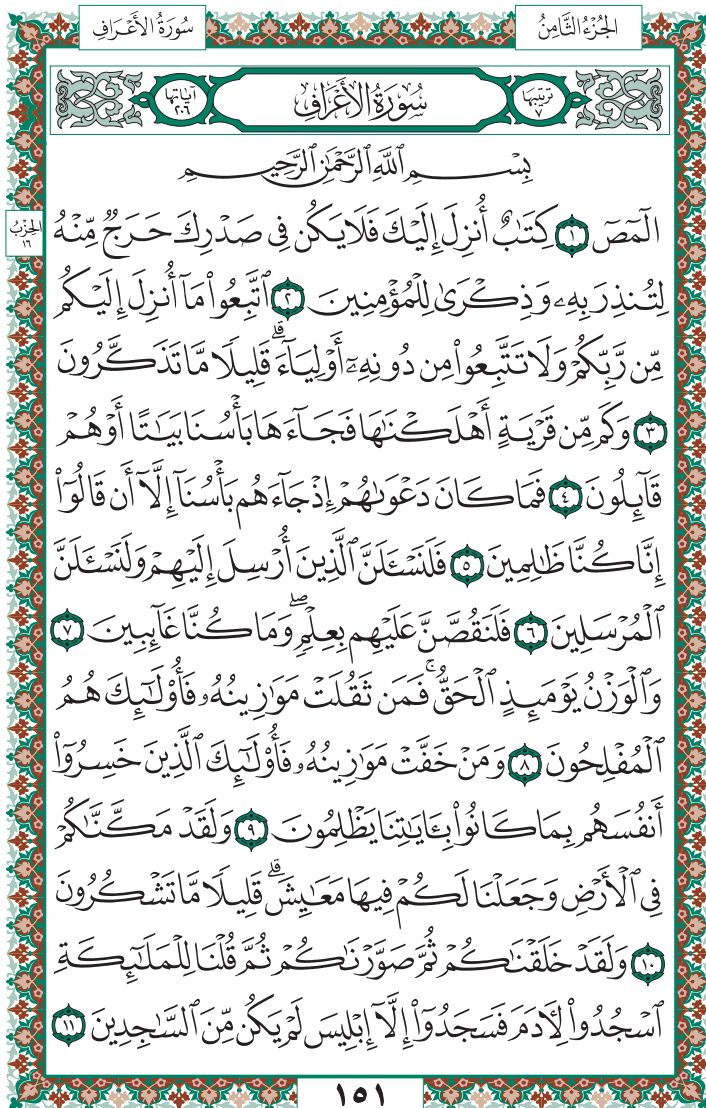 الجُزْءُ الثَّامِنُ
سُورَةُ الأَعْرَافِ
تَرتيبُها ٧
سُورَةُ الأَعْرَافِ
آيَاتُها ٢٠٦
الحِزْبُ ١٦
بِسْمِ ٱللَّهِ ٱلرَّحْمَٰنِ ٱلرَّحِيمِ
الٓمٓصٓ ١ كِتَٰبٌ أُنزِلَ إِلَيْكَ فَلَا يَكُن فِى صَدْرِكَ حَرَجٌ مِّنْهُ
لِتُنذِرَ بِهِۦ وَذِكْرَىٰ لِلْمُؤْمِنِينَ ٢ ٱتَّبِعُوا۟ مَآ أُنزِلَ إِلَيْكُم
مِّن رَّبِّكُمْ وَلَا تَتَّبِعُوا۟ مِن دُونِهِۦٓ أَوْلِيَآءَ ۗ قَلِيلًا مَّا تَذَكَّرُونَ
٣ وَكَم مِّن قَرْيَةٍ أَهْلَكْنَٰهَا فَجَآءَهَا بَأْسُنَا بَيَٰتًا أَوْ هُمْ
قَآئِلُونَ ٤ فَمَا كَانَ دَعْوَىٰهُمْ إِذْ جَآءَهُم بَأْسُنَآ إِلَّآ أَن قَالُوٓا۟
إِنَّا كُنَّا ظَٰلِمِينَ ٥ فَلَنَسْـَٔلَنَّ ٱلَّذِينَ أُرْسِلَ إِلَيْهِمْ وَلَنَسْـَٔلَنَّ
ٱلْمُرْسَلِينَ ٦ فَلَنَقُصَّنَّ عَلَيْهِم بِعِلْمٍ ۖ وَمَا كُنَّا غَآئِبِينَ ٧
وَٱلْوَزْنُ يَوْمَئِذٍ ٱلْحَقُّ ۚ فَمَن ثَقُلَتْ مَوَٰزِينُهُۥ فَأُو۟لَٰٓئِكَ هُمُ
ٱلْمُفْلِحُونَ ٨ وَمَنْ خَفَّتْ مَوَٰزِينُهُۥ فَأُو۟لَٰٓئِكَ ٱلَّذِينَ خَسِرُوٓا۟
أَنفُسَهُم بِمَا كَانُوا۟ بِـَٔايَٰتِنَا يَظْلِمُونَ ٩ وَلَقَدْ مَكَّنَّٰكُمْ
فِى ٱلْأَرْضِ وَجَعَلْنَا لَكُمْ فِيهَا مَعَٰيِشَ ۗ قَلِيلًا مَّا تَشْكُرُونَ
١٠ وَلَقَدْ خَلَقْنَٰكُمْ ثُمَّ صَوَّرْنَٰكُمْ ثُمَّ قُلْنَا لِلْمَلَٰٓئِكَةِ
ٱسْجُدُوا۟ لِءَادَمَ فَسَجَدُوٓا۟ إِلَّآ إِبْلِيسَ لَمْ يَكُن مِّنَ ٱلسَّٰجِدِينَ ١١
١٥١